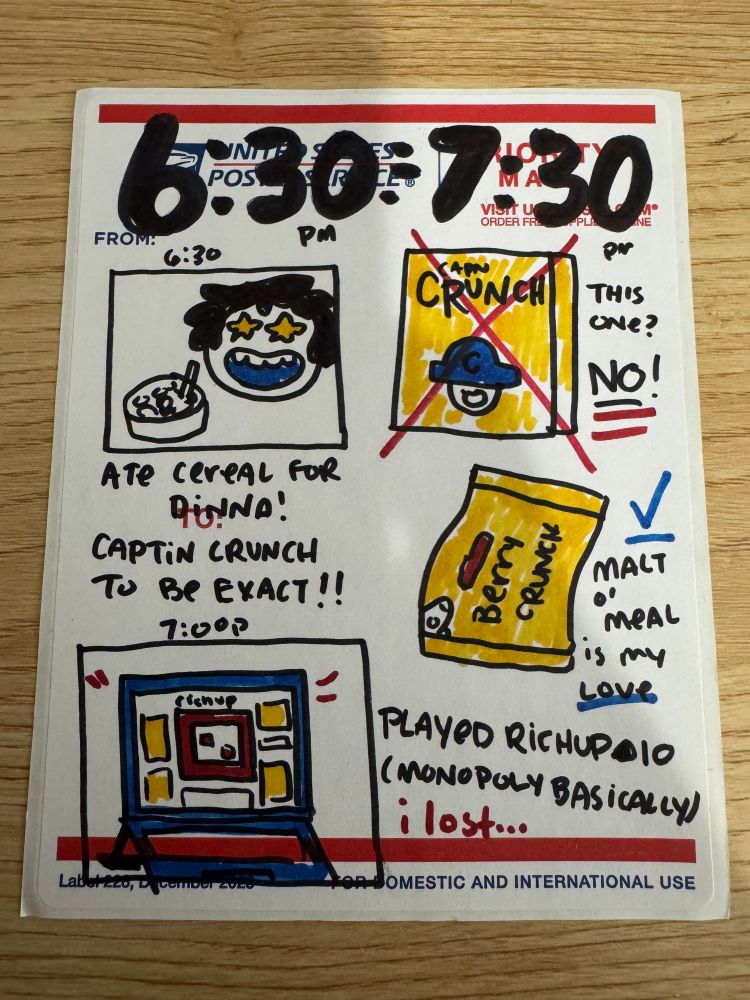 6:30-7:30
UNITED STATES
POSTAL SERVICE®
PRIORITY
MAIL
ORDER FREE SUPPLIES ONLINE
FROM:
PM
pm
6:30
CAPN
CRUNCH
C
THIS
ONE?
NO!
ATE CEREAL FOR
DINNA!
TO:
CAPTIN CRUNCH
TO BE EXACT!!
Berry
CRUNCH
MALT
O'
MEAL
is my
LOVE
7:00P
richup
PLAYED RICHUP.IO
(MONOPOLY BASICALLY)
i lost...
Label 228, December 2023
FOR DOMESTIC AND INTERNATIONAL USE